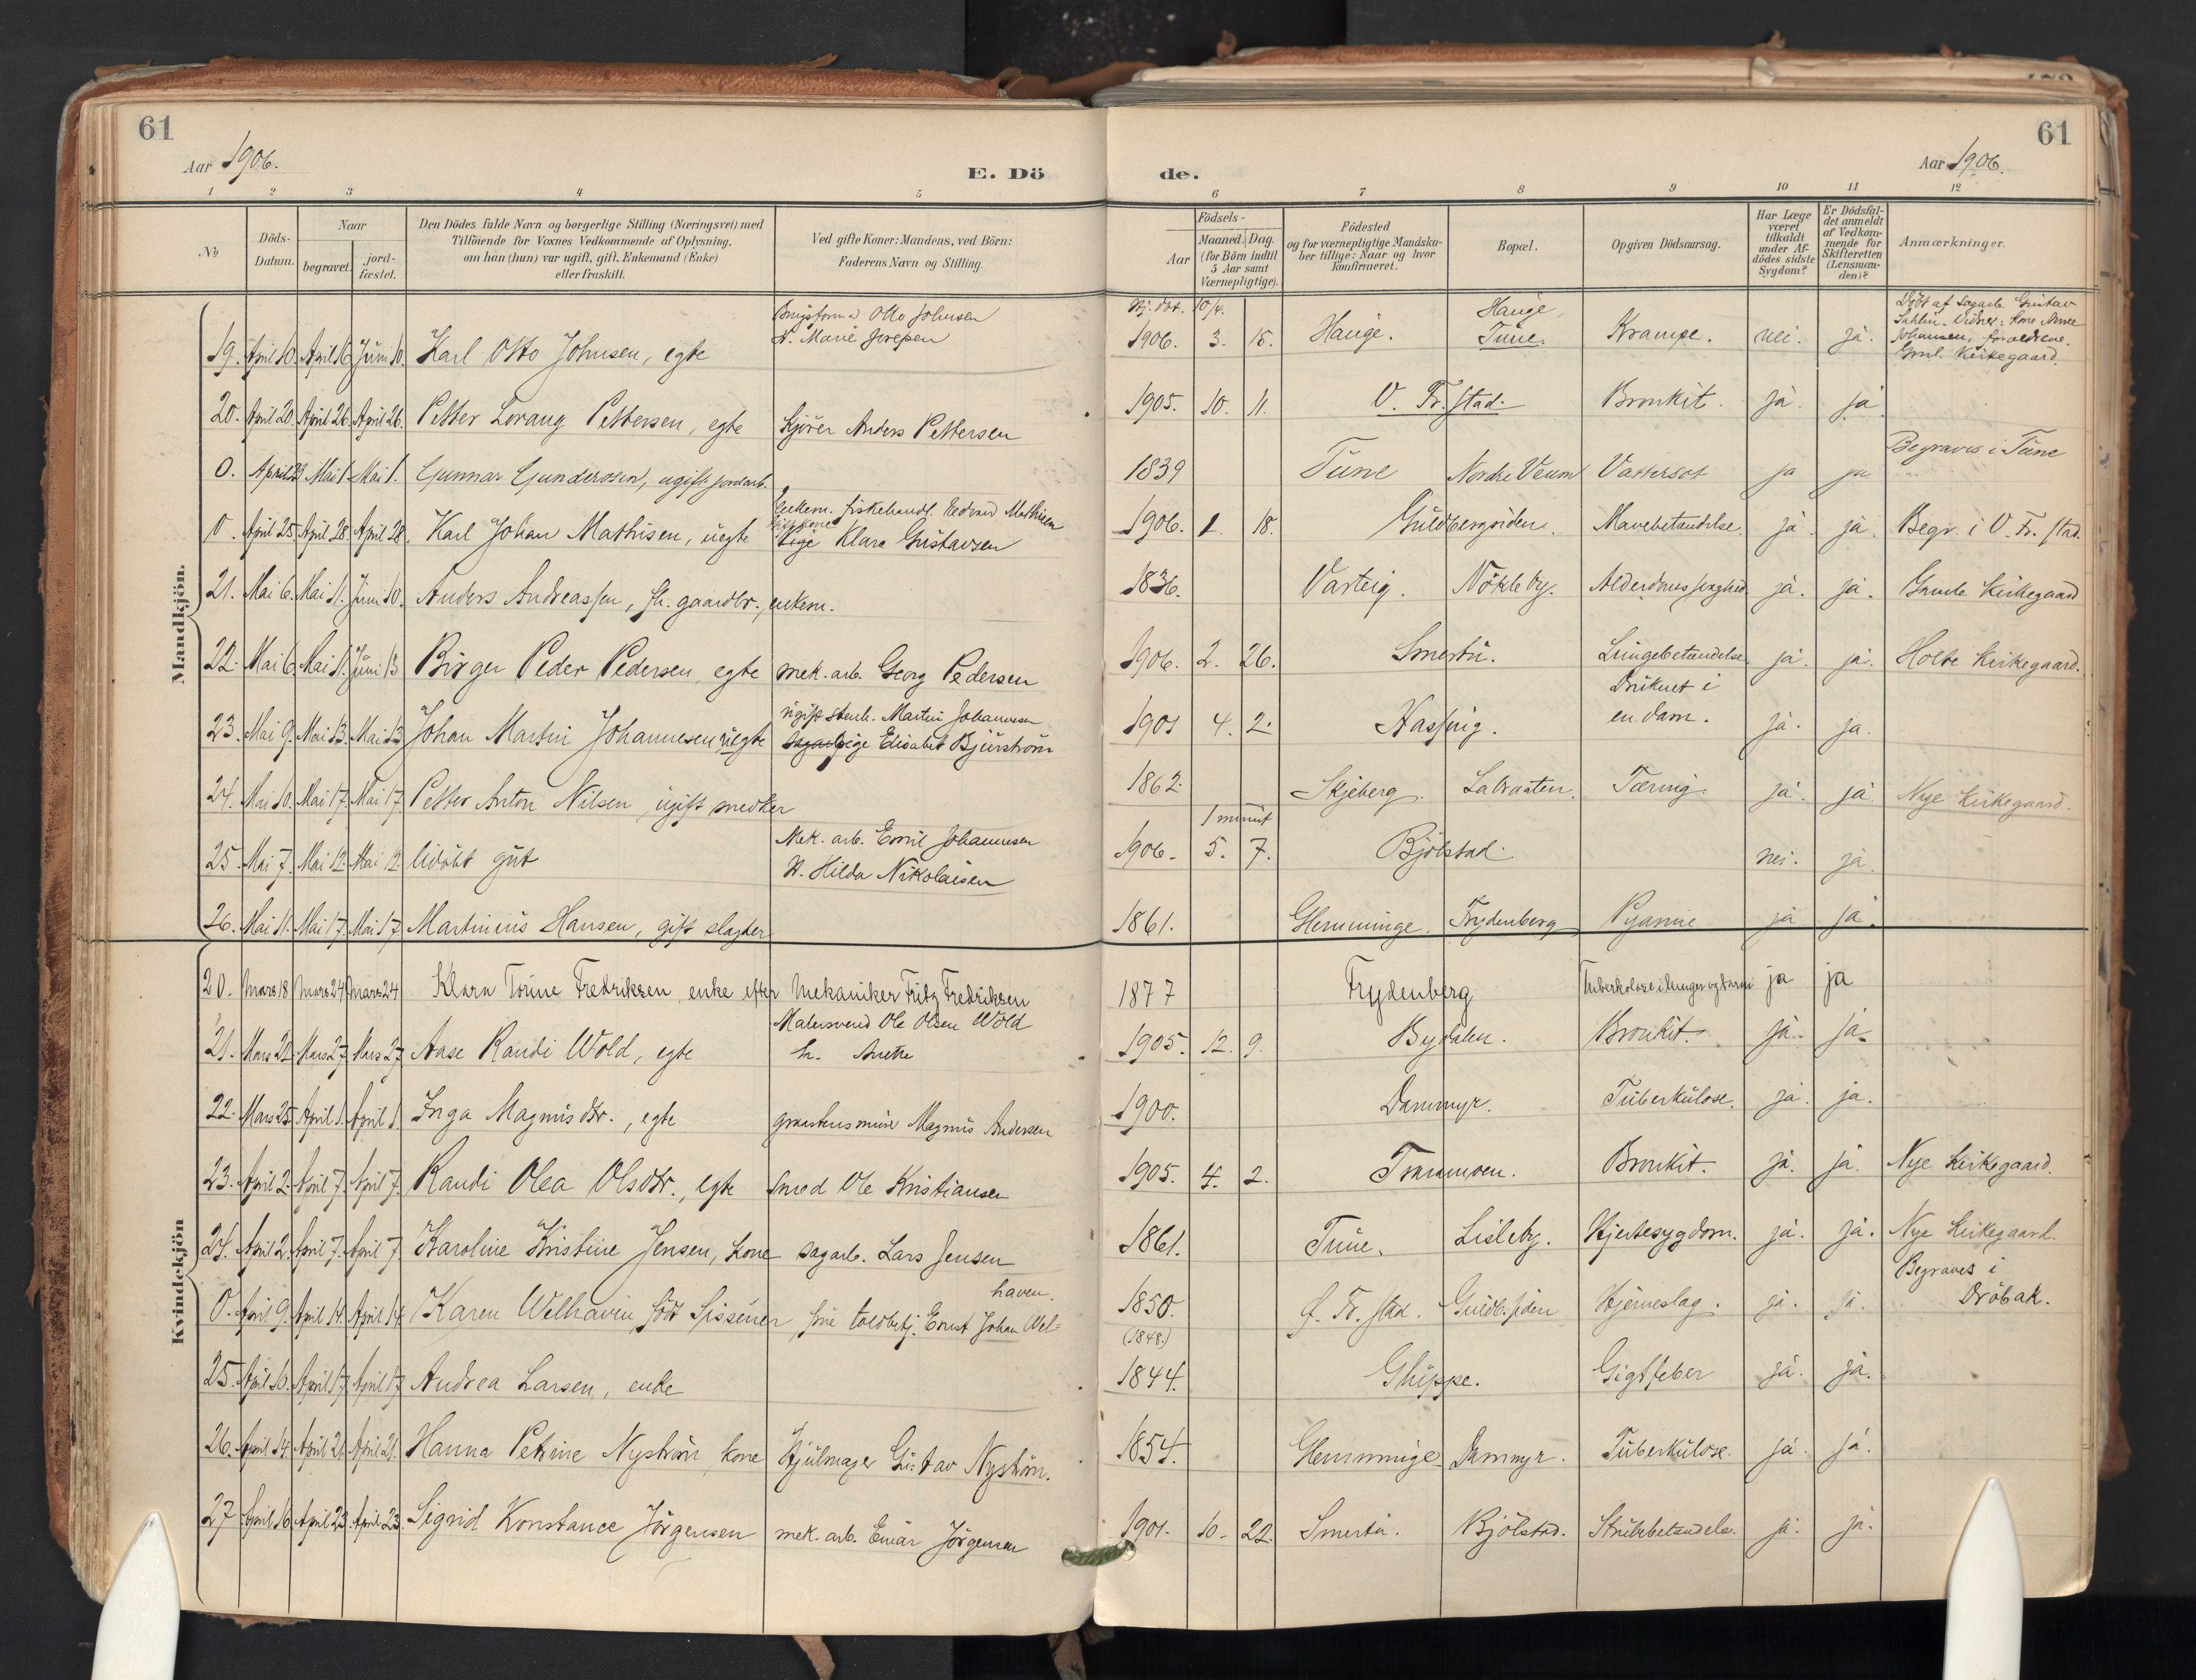 61
61
Aar 1906.
E. Döde.
Aar 1906.
1 2 3 4 5 6 7 8 9 10 11 12
No.
Döds-Datum.
Naar
begravet.
jord-fæstet.
Den Dödes fulde Navn og borgerlige Stilling (Næringsvei) med
Tilföiende for Voxnes Vedkommende af Oplysning,
om han (hun) var ugift, gift, Enkemand (Enke)
eller fraskilt.
Ved gifte Koner: Mandens, ved Börn:
Faderens Navn og Stilling.
Födsels-
Aar
Maaned. Dag.
(for Börn indtil
5 Aar samt
Værnepligtige).
Födested
og for værnepligtige Mandska-
ber tillige: Naar og hvor
konfirmeret.
Bopæl.
Opgiven Dödsaarsag.
Har Læge
været
tilkaldt
under Af-
dödes sidste
Sygdom?
Er Dödsfal-
det anmeldt
af Vedkom-
mende for
Skifteretten
(Lensman-
den)?
Anmærkninger.
Mandkjön.
19. April 10. April 16 Juni 10. Karl Otto Johnsen, egte
Otto Johnsen
H. Marie
Hj. döt. 10/4.
1906. 3. 15. Hauge. Hauge, Tune. Krampe. nei. ja.
Döbt af Sagarb. Gustav
Sahlin. Vidner: kone Anne
Johansen, foraeldrene.
Gml. Kirkegaard.
20. April 20. April 26. April 26. Petter Lorang Pettersen, egte Kjörer Anders Pettersen 1905. 10. 11. V. Fr.stad. Bronkit. ja. ja.
0. April 23 Mai 1 Mai 1. Gunnar Gundersen, ugift jordarb. 1839 Tune Nordre Veum Vattersot ja ja Begraves i Tune
Enkem. fiskehandl. Edvard Mathisen
0. April 25 April 28 April 28. Karl Johan Mathisen, uegte pige Klara Gustavsen 1906. 1. 18. Guldbergsiden. Mavebetændelse. ja. ja. Begr. i V. Fr.stad.
21. Mai 6. Mai 11. Juni 10. Anders Andreassen, fh. gaardbr., enkem. 1836. Varteig. Nökleby. Alderdomssvaghed ja. ja. Gamle Kirkegaard
22. Mai 6. Mai 11. Juni 13 Birger Peder Pedersen, egte mek. arb. Georg Pedersen 1906. 2. 26. Smertu. Lungebetændelse ja. ja. Holte Kirkegaard.
23. Mai 9. Mai 13. Mai 13 Johan Martin Johannesen, uegte
ugift stenh. Martin Johannesen
pige Elisabet Bjurström
1901 4. 2. Hassing. Druknet i en dam. ja. ja.
24. Mai 10. Mai 17. Mai 17. Petter Anton Nilsen, ugift snedker 1862. Skjeberg. Labraaten. Tæring. ja. ja. Nye Kirkegaard.
25. Mai 7. Mai 12. Mai 12. Udöbt gut
Mek. arb. Emil Johannesen
H. Hilda Nikolaisen
1 minut
1906. 5. 7. Bjölstad. nei. ja.
26. Mai 11. Mai 17. Mai 17. Martinius Hansen, gift slagter 1861. Glemminge. Frydenberg Pyæmie ja ja.
Kvindekjön
20. Mars 18 Mars 24 Mars 24 Klara Torine Fredriksen, enke efter Mekaniker Fritz Fredriksen 1877 Frydenberg Tuberkolose i lunger og tarm ja ja
21. Mars 21. Mars 27. Mars 27. Aase Randi Wold, egte
Malersvend Ole Olsen Wold
h. Anette
1905. 12. 9. Bydalen. Bronkit. ja. ja.
22. Mars 25. April 1. April 1. Inga Magnusdtr., egte graastensmurer Magnus Andersen 1900. Dammyr. Tuberkulose. ja. ja.
23. April 2. April 7. April 7. Randi Olea Olsdtr., egte smed Ole Kristiansen 1905. 4. 2. Trammoen. Bronkit. ja. ja. Nye Kirkegaard.
24. April 2. April 7. April 7. Karoline Kristine Jensen, kone sagarb. Lars Jensen 1861. Tune. Lisleby. Hjertesygdom. ja. ja. Nye Kirkegaard.
0. April 9. April 14. April 14 Karen Welhaven, född Sissener, frue toldbetj. Ernst Johan Wel=
haven.
1850. (1848.) f. Fr.stad. Guldb.siden Hjerneslag. ja. ja. Begraves i Dröbak.
25. April 10. April 17. April 17 Andrea Larsen, enke 1844. Gluppe. Gigtfeber ja. ja.
26. April 14. April 21. April 21. Hanna Petrine Nyström, kone Hjulmager Gustav Nyström. 1854. Glemminge Dammyr. Tuberkulose. ja. ja.
27 April 16. April 23. April 23. Sigrid Konstance Jörgensen mek. arb. Einar Jörgensen 1901. 10. 22. Smertu. Bjölstad. Strubebetændelse. ja. ja.